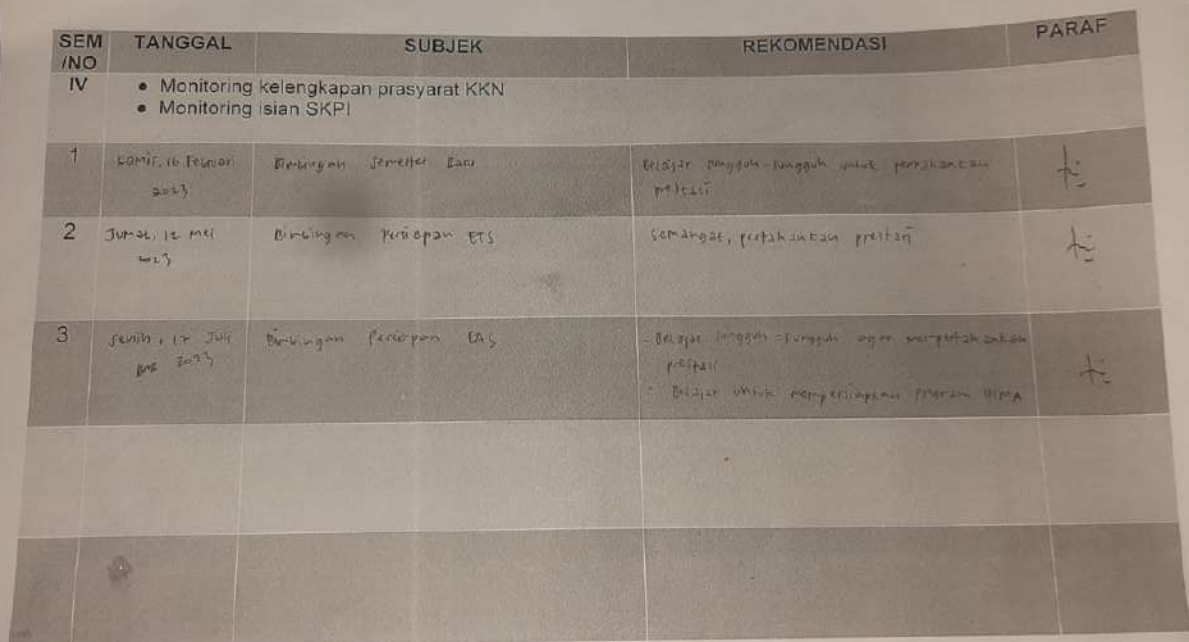 SEM TANGGAL SUBJEK REKOMENDASI PARAF
/NO
IV • Monitoring kelengkapan prasyarat KKN
• Monitoring isian SKPI
1 Kamis, 16 Februari Bimbingan Semester Baru Belajar sungguh-sungguh untuk pertahankan
2023 prestasi
2 Jumat, 12 Mei Bimbingan Persiapan ETS Semangat, pertahankan prestasi
2023
3 Senin, 17 Juli Bimbingan Persiapan EAS - Belajar sungguh-sungguh agar mempertahankan
2023 prestasi
- Belajar untuk mempersiapkan program